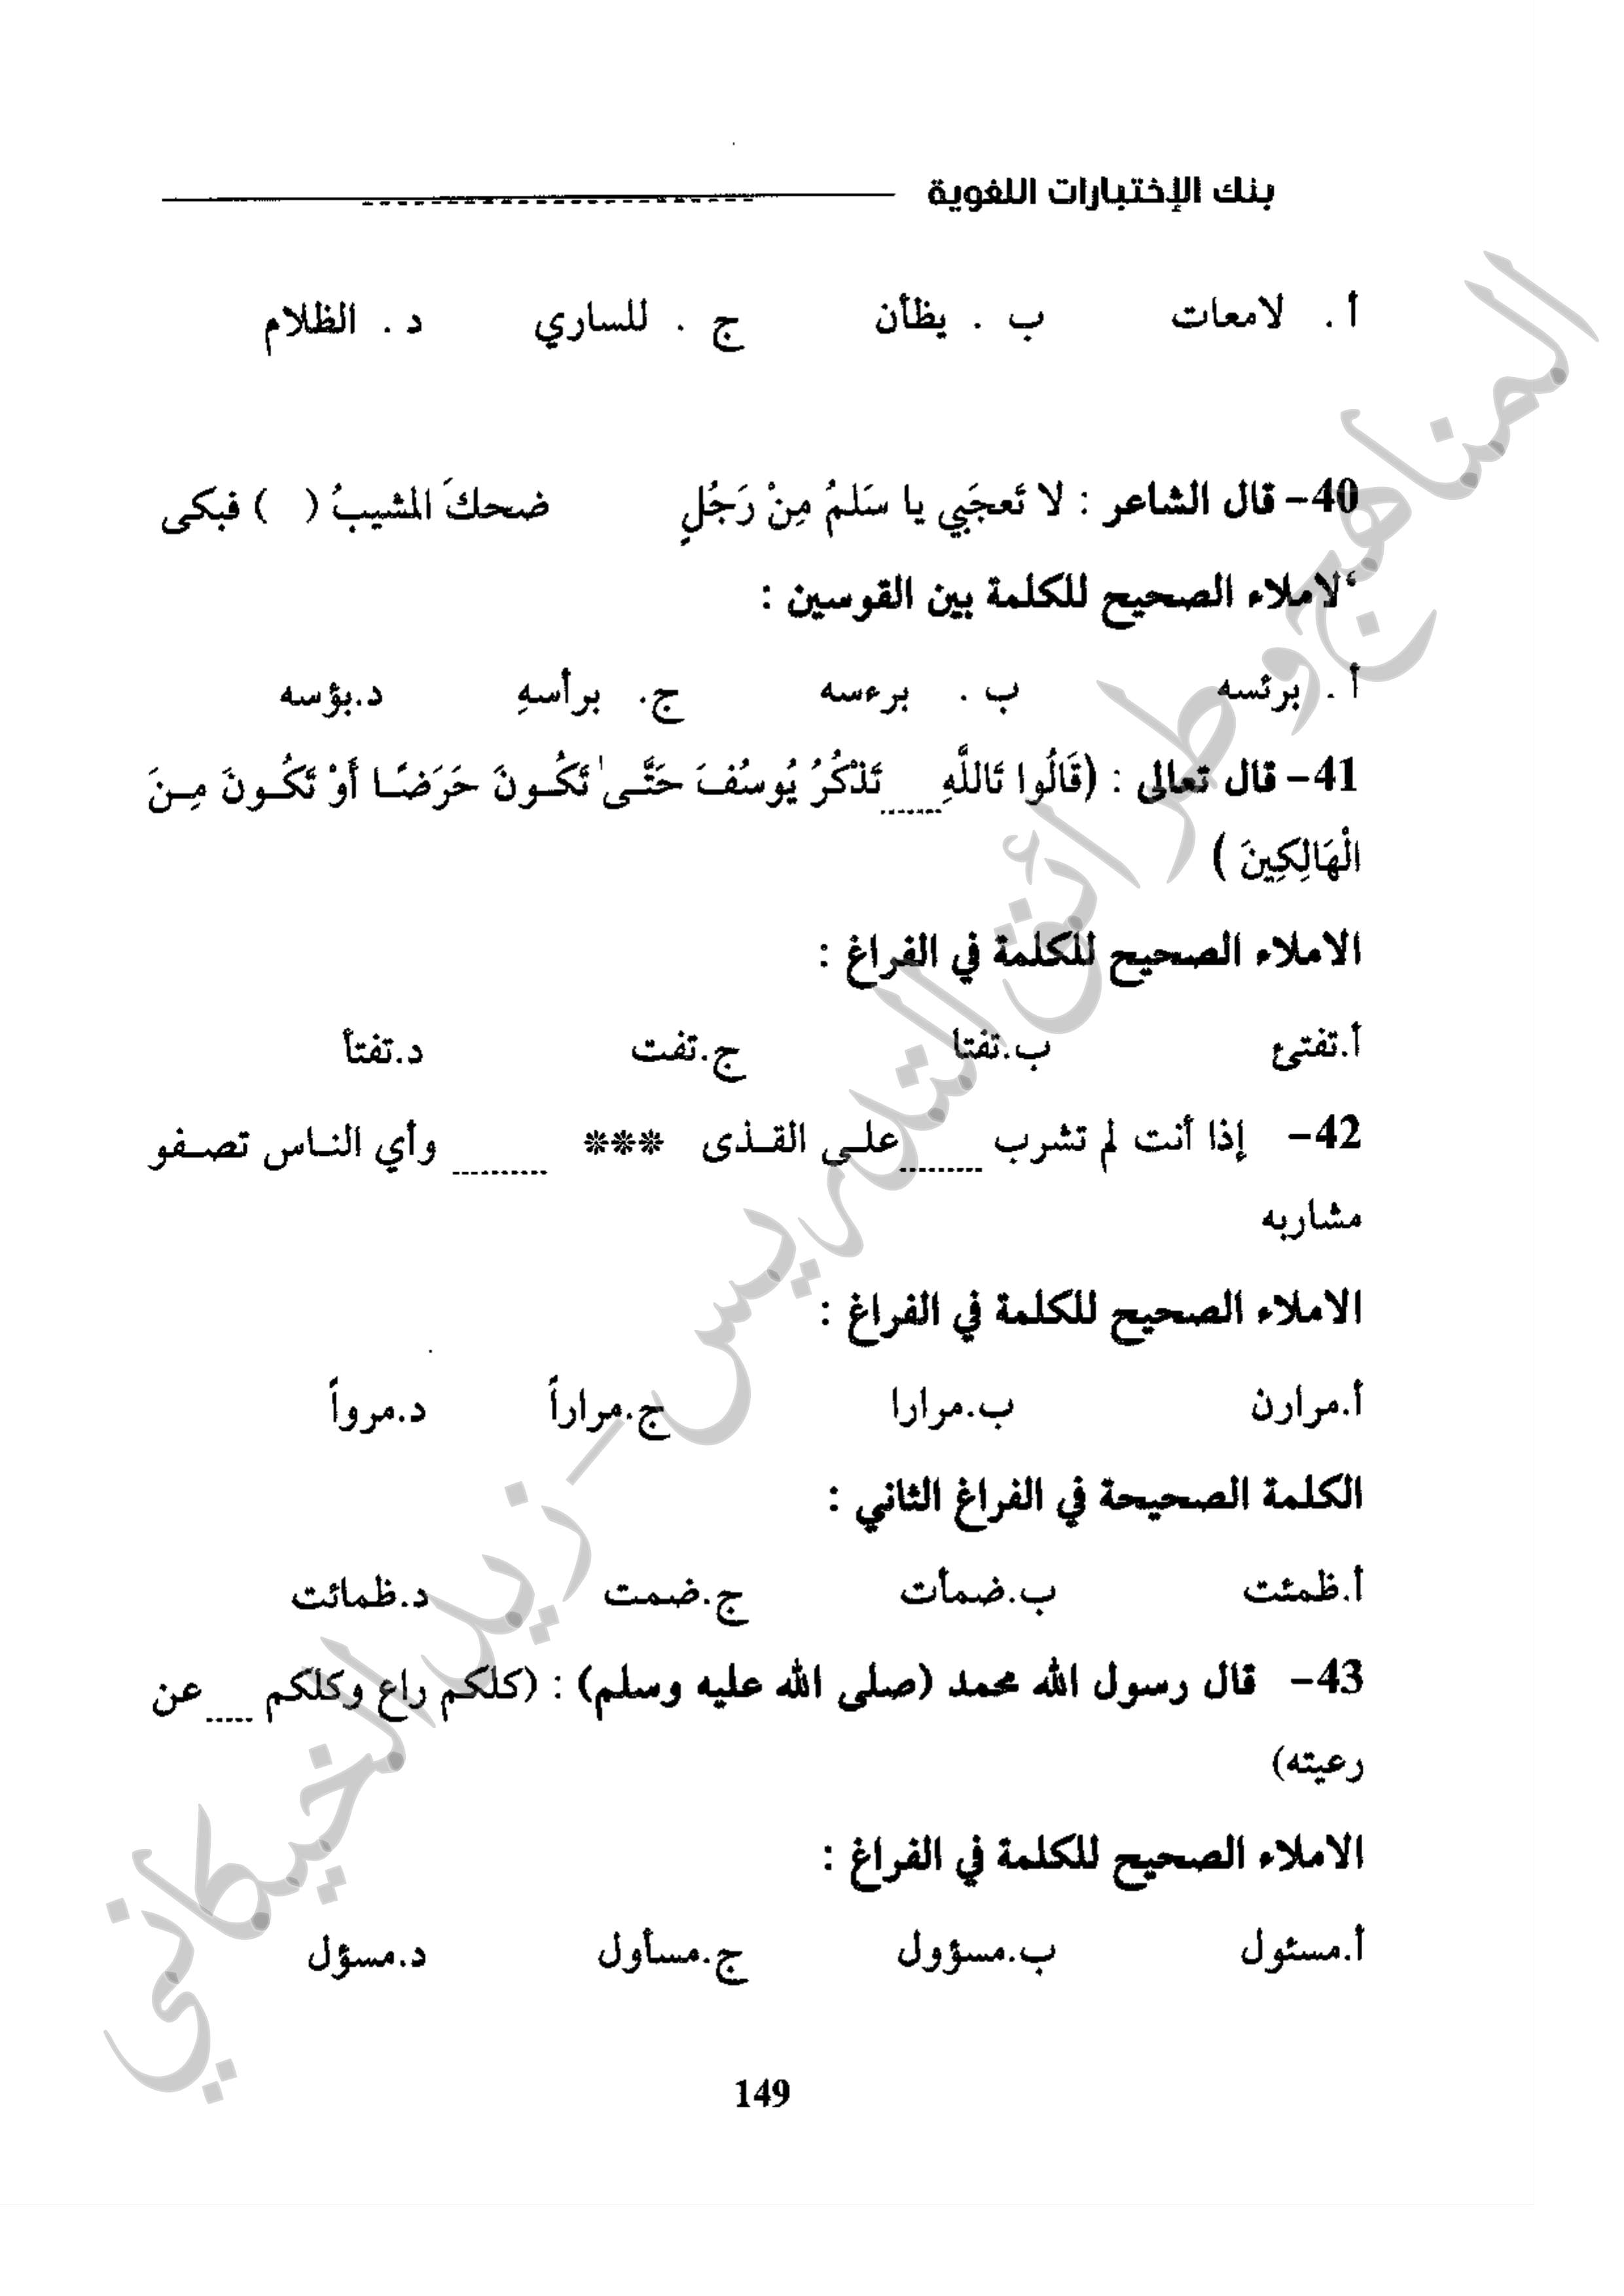 بنك الإختبارات اللغوية
أ . لامعات ب . يظأن ج . للساري د . الظلام
40- قال الشاعر : لا تَعجَبي يا سَلمُ مِنْ رَجُلٍ ضحكَ المشيبُ ( ) فبكى
ألاملاء الصحيح للكلمة بين القوسين :
أ . برئسه ب . برءسه ج. برأسهِ د.بؤسه
41- قال تعالى : (قَالُوا تَاللَّهِ......تَذْكُرُ يُوسُفَ حَتَّىٰ تَكُونَ حَرَضًا أَوْ تَكُونَ مِنَ
الْهَالِكِينَ )
الاملاء الصحيح للكلمة في الفراغ :
أ.تفتئ ب.تفتا ج.تفت د.تفتأ
42- إذا أنت لم تشرب .........على القذى *** .......... وأي الناس تصفو
مشاربه
الاملاء الصحيح للكلمة في الفراغ :
أ.مرارن ب.مرارا ج.مراراً د.مرواً
الكلمة الصحيحة في الفراغ الثاني :
أ.ظمئت ب.ضمأت ج.ضمت د.ظمائت
43- قال رسول الله محمد (صلى الله عليه وسلم) : (كلكم راع وكلكم .....عن
رعيته)
الاملاء الصحيح للكلمة في الفراغ :
أ.مسئول ب.مسؤول ج.مسأول د.مسؤل
149
المناهج وطرائق التدريس - زيد الخيكاني